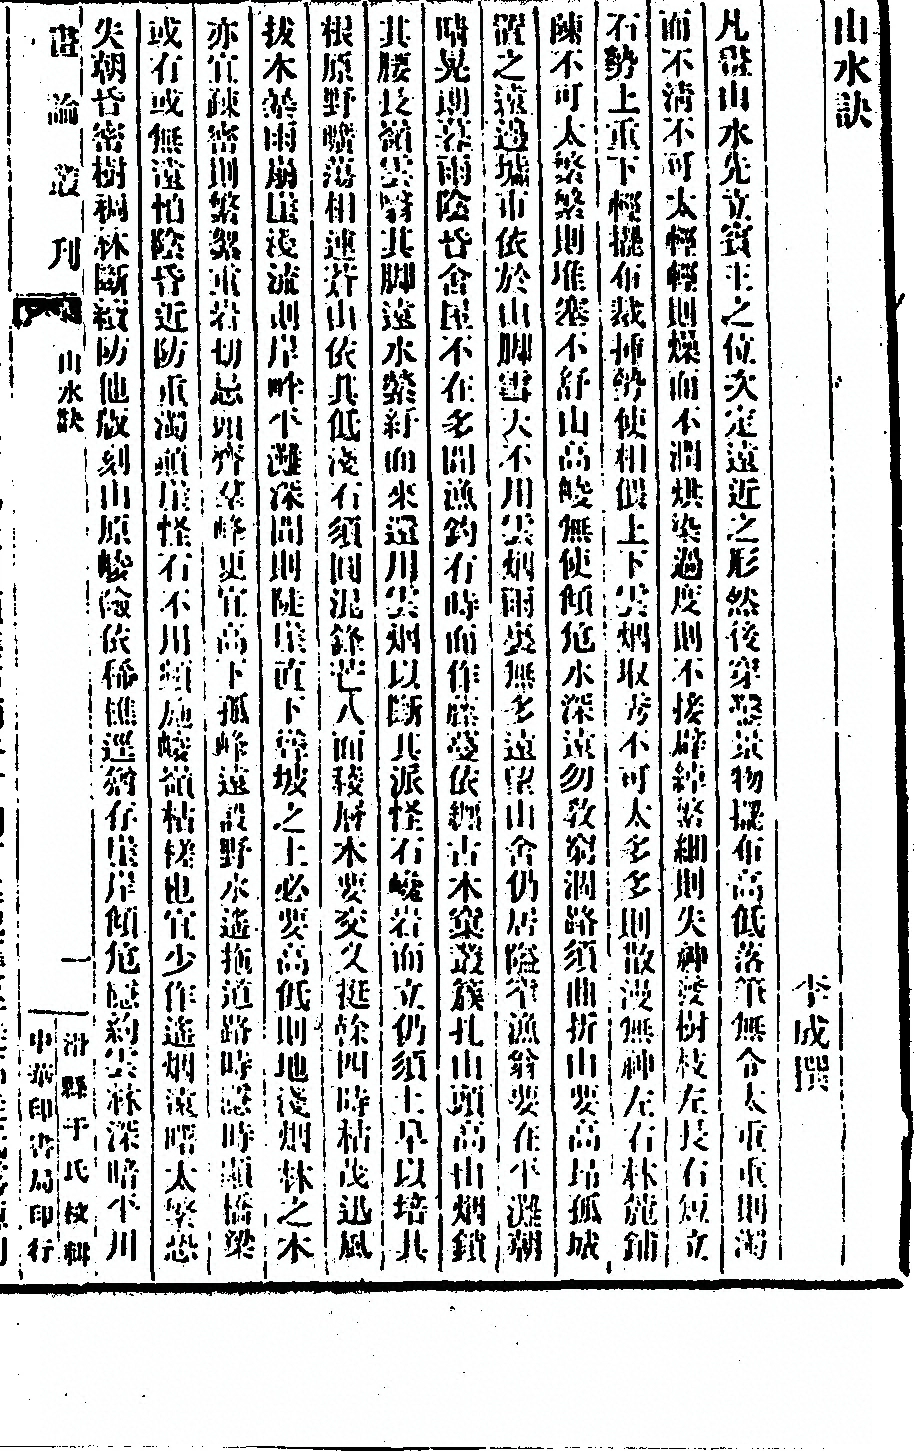 山水訣
李成撰
凡畫山水先立賓主之位次定遠近之形然後穿鑿景物擺布高低落筆無令太重重則濁
而不清不可太輕輕則燥而不潤烘染過度則不接辟綽繁細則失神發樹枝左長右短立
石勢上重下輕擺布裁插勢使相偎上下雲烟取秀不可太多多則散漫無神左右林麓鋪
陳不可太繁繁則堆塞不舒山高峻無使傾危水深遠勿教窮涸路須曲折山要高昂孤城
置之遠邊墟市依於山脚雪天不用雲烟雨景無多遠望山舍仍居隘窄漁翁要在平灘朝
晴晃朗暮雨陰昏舍屋不在多間漁釣有時而作藤蔓依纏古木窠叢簇扎山頭高山烟鎖
其腰長嶺雲翳其脚遠水縈紆而來還用雲烟以斷其派怪石巉岩而立仍須土阜以培其
根原野曠蕩相連蒼山依其低淺石須圓混鋒芒八面稜層木要交久挺幹四時枯茂迅風
拔木暴雨崩崖淺流則岸畔平灘深澗則陡崖直下聳坡之上必要高低則地淺烟林之木
亦宜疎密則繁絮重岩切忌頭齊羣峰更宜高下孤峰遠設野水遙拖道路時隱時顯橋梁
或有或無遠怕陰昏近防重濁顛崖怪石不用頻施峻嶺枯槎也宜少作遙烟遠曙太繁恐
失朝昏密樹稠林斷續防他版刻山原峻險依稀樵逕猶存崖岸傾危隱約雲林深暗平川
畫論叢刊
山水訣
一
滑縣于氏校輯
中華印書局印行